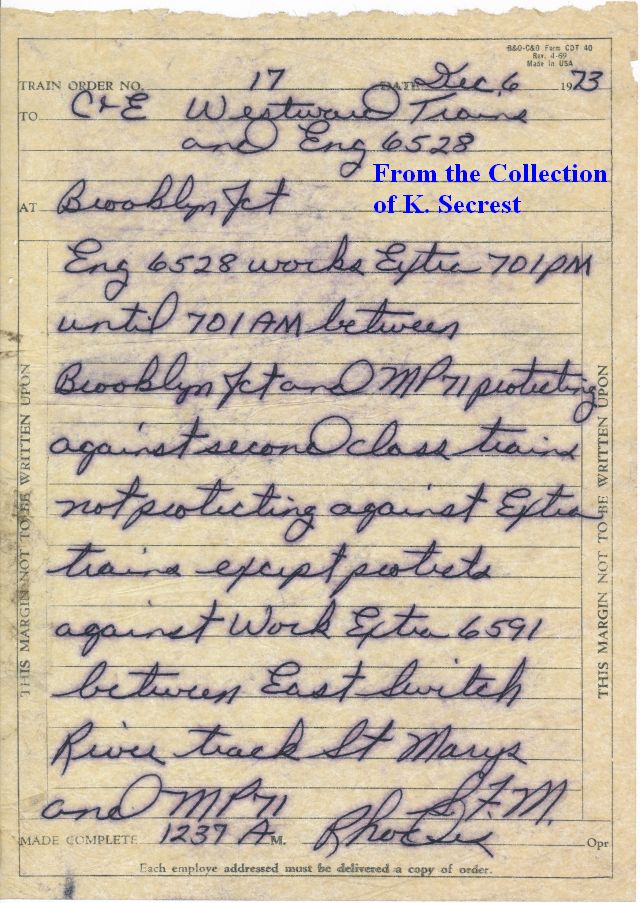 B&O-C&O Form CDT 40
Rev. 4-69
Made in USA
TRAIN ORDER NO. 17 DATE Dec 6 1973
TO C&E Westward Trains
and Eng 6528
From the Collection
of K. Secrest
AT Brooklyn Jct
Eng 6528 works Extra 701PM
until 701AM between
Brooklyn Jct and MP71 protecting
against second class trains
not protecting against Extra
trains except protects
against Work Extra 6591
between East Switch
River track St Marys
and MP71
S.F.M.
MADE COMPLETE 1237 A.M. Opr
Each employe addressed must be delivered a copy of order.
THIS MARGIN NOT TO BE WRITTEN UPON
THIS MARGIN NOT TO BE WRITTEN UPON